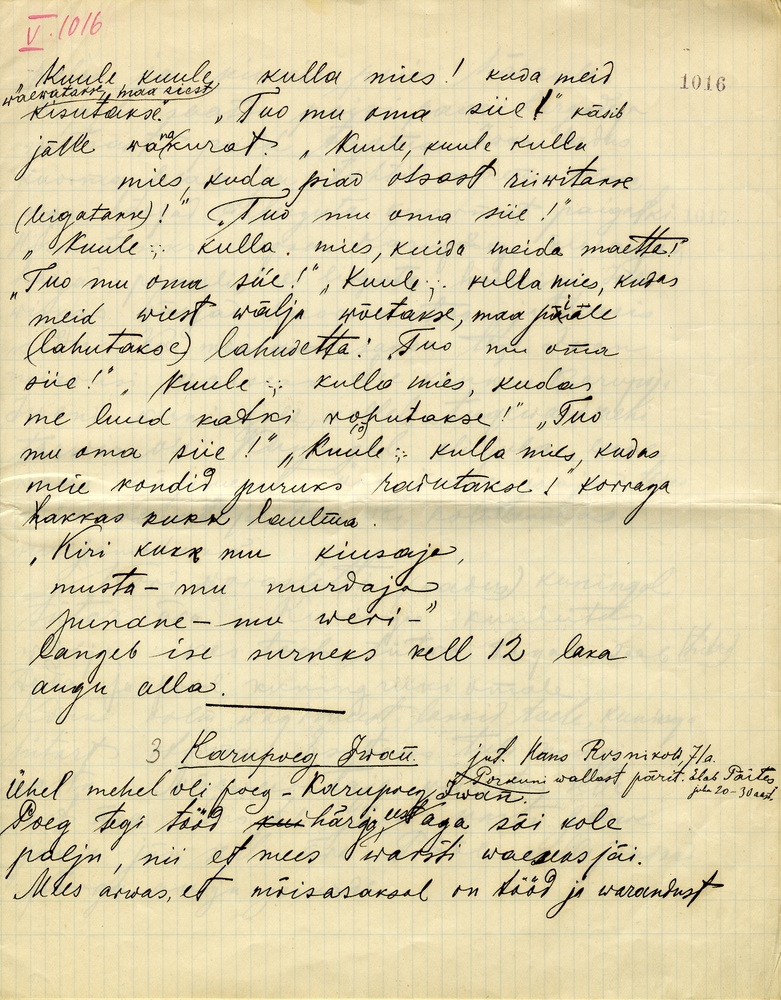 V. 1016
1016
"Kuule, kuule, kulla mies! kuda meid
waewatasse, maa seest
kisutakse." "Tuo mu oma siie!" käsib
jälle wanakurat. "Kuule, kuule kulla
mies, kuda piad otsast riiwitakse
(ligatakse)!" "Tuo mu oma siie!"
"Kuule :,: kulla mies, kuida meida maetta!"
"Tuo mu oma siie!" "Kuule :,: kulla mies, kudas
meid wiest wälja wõetakse, maa pääle
(lahutakse) lahudetta! Tuo mu oma
siie!" "Kuule :,: kulla mies, kudas
me luud katki rohutakse!" "Tuo
mu oma siie!" "Kuule :,: kulla mies, kudas
meie kondid puruks raiutakse!" Korraga
hakkas kukk laulma.
"Kiri kukk mu kiusaje,
musta - mu murdaja
punane - mu weri -"
langeb ise surneks kell 12 laka
augu alla.
3 Karupoeg Iwan. jut. Hans Rosnikow, 71a.
Porkuni wallast pärit. Elab Päites
juba 20-30 aast.
Ühel mehel oli poeg - Karupoeg Iwan.
Poeg tegi tööd kui härg eest aga sõi kole
palju, nii et mees warsti waeseks jäi.
Mees arwas, et mõisasaksal on tööd ja warandust